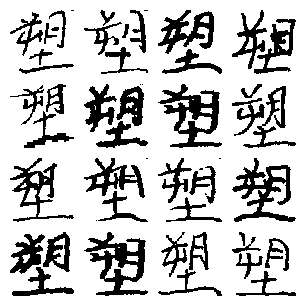 塑塑塑塑
塑塑塑塑
塑塑塑塑
塑塑塑塑